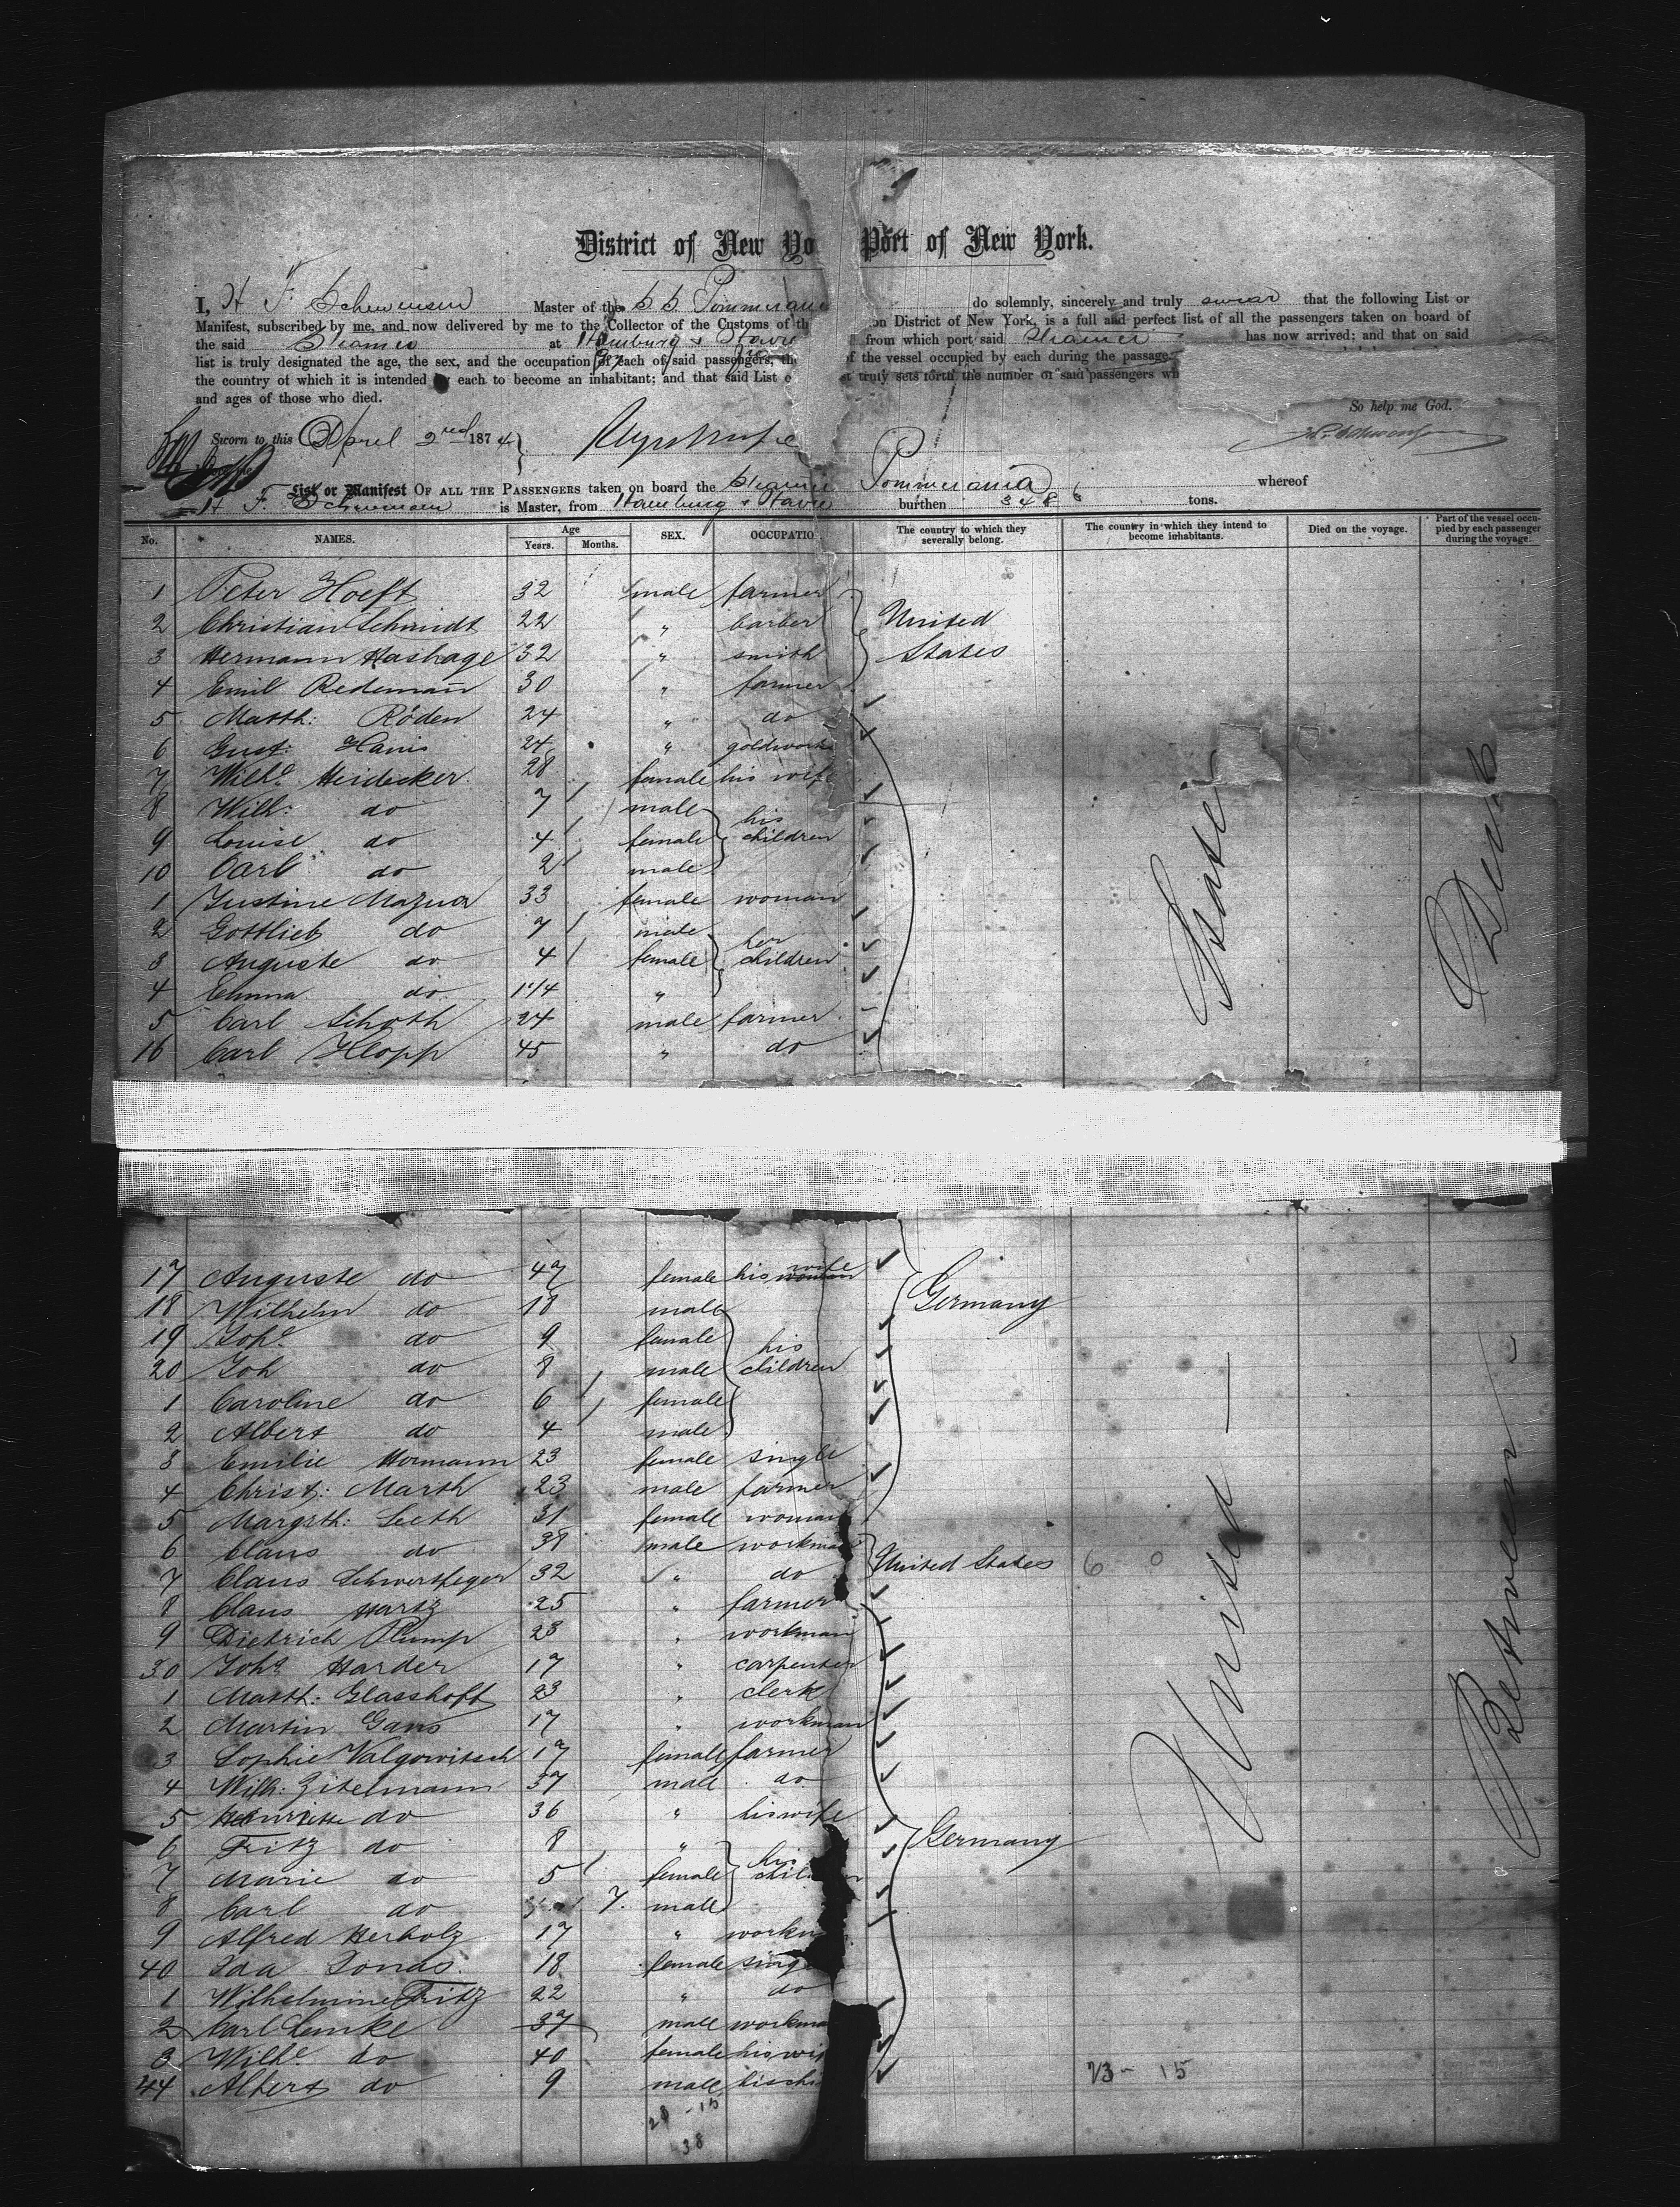 District of New Yo Port of New York.
I, H F. Schwensen Master of the S S Pommerania do solemnly, sincerely and truly swear that the following List or
Manifest, subscribed by me, and now delivered by me to the Collector of the Customs of th on District of New York, is a full and perfect list of all the passengers taken on board of
the said Steamer at Hamburg & Havre from which port said Steamer has now arrived; and that on said
list is truly designated the age, the sex, and the occupation of each of said passengers, th of the vessel occupied by each during the passage
the country of which it is intended each to become an inhabitant; and that said List o st truly sets forth the number of said passengers wh
and ages of those who died. So help me God.
Sworn to this April 2nd 1874
List or Manifest OF ALL THE PASSENGERS taken on board the Steamer Pommerania whereof
H F. Schwensen is Master, from Hamburg & Havre burthen 348 tons.
No. NAMES. Age Years. Months. SEX. OCCUPATIO The country to which they severally belong. The country in which they intend to become inhabitants. Died on the voyage. Part of the vessel occupied by each passenger during the voyage.
1 Peter Hoeft 32 male farmer
2 Christian Schmidt 22 " barber United
3 Hermann Hashage 32 " smith States
4 Emil Redemann 30 " farmer
5 Matth: Röden 24 " do
6 Gust: Hanis 24 " goldwork
7 Wilhe Heidecker 28 female his wife
8 Wilh: do 7 male his
9 Louise do 4 female children
10 Carl do 2 male
1 Justine Mazua 33 female woman
2 Gottlieb do 7 male her
3 Auguste do 4 female children
4 Emma do 1 1/4 "
5 Carl Schoth 24 male farmer
16 Carl Klopp 45 " do
17 Auguste do 47 female his wife
18 Wilhelm do 18 male Germany
19 Johe do 9 female his
20 Joh do 8 male children
1 Caroline do 6 female
2 Albert do 4 male
3 Emilie Hormann 23 female single
4 Christ: Marth 23 male farmer
5 Margrth: Leeth 31 female woman
6 Claus do 38 male workma
7 Claus Schwerthfeger 32 " do United States 6 0
8 Claus Hartz 25 " farmer
9 Dietrich Plump 23 " workman
30 Johs Harder 17 " carpenter
1 Matth: Glasshoft 23 " clerk
2 Martin Gans 17 " workman
3 Sophie Valgowitsch 17 female farmer
4 Wilh: Zitelmann 37 male do
5 Henriette do 36 " his wife
6 Fritz do 8 " his Germany
7 Marie do 5 female chil
8 Carl do 7. male
9 Alfred Herholz 17 " workm
40 Ida Jonas 18 female sing
1 Wilhelmine Fritz 22 " do
2 Carl Lemke 37 male workma
3 Wilhe do 40 female his wi
44 Albert do 9 male his chi
United States
Between Deck
23 - 15
28 - 15
38